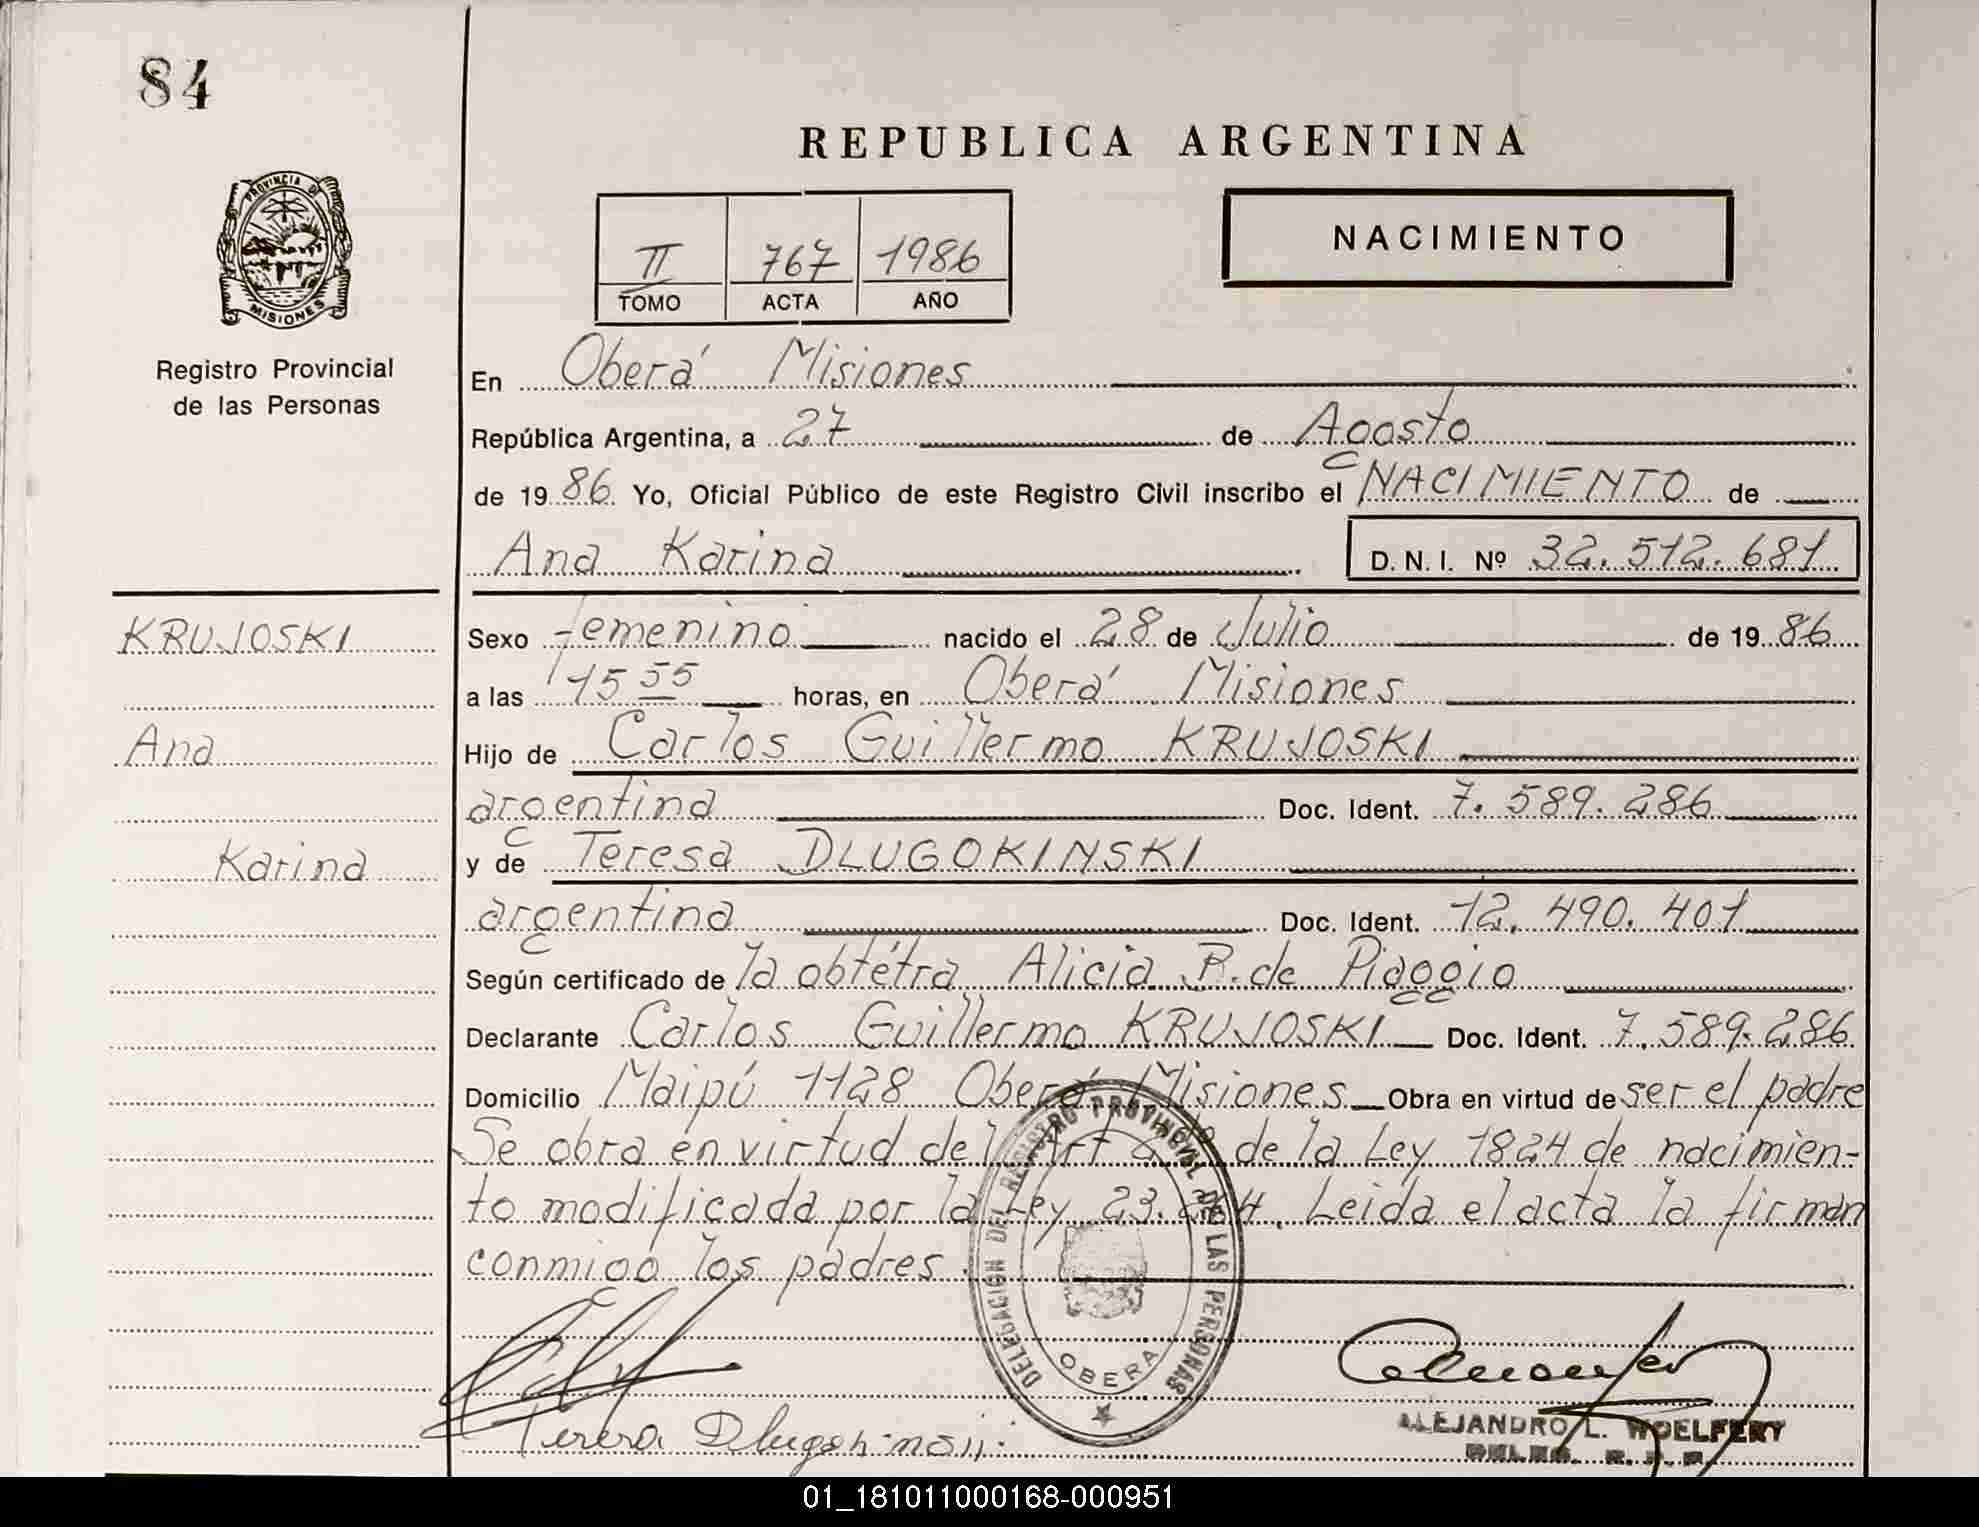 84
REPUBLICA ARGENTINA
PROVINCIA DE
MISIONES
Registro Provincial
de las Personas
II 767 1986
TOMO ACTA AÑO
NACIMIENTO
En Oberá Misiones
República Argentina, a 27 de Agosto
de 1986. Yo, Oficial Público de este Registro Civil inscribo el NACIMIENTO de
Ana Karina D.N.I. Nº 32.512.681
KRUJOSKI
Ana
Karina
Sexo femenino nacido el 28 de Julio de 1986
a las 15 55 horas, en Oberá Misiones
Hijo de Carlos Guillermo KRUJOSKI
argentina Doc. Ident. 7.589.286
y de Teresa DLUGOKINSKI
argentina Doc. Ident. 12.490.401
Según certificado de la obtétra Alicia P. de Piaggio
Declarante Carlos Guillermo KRUJOSKI Doc. Ident. 7.589.286
Domicilio Maipú 1128 Oberá Misiones Obra en virtud de ser el padre
Se obra en virtud del Art de la Ley 1824 de nacimien-
to modificada por la Ley 23. Leida el acta la firman
conmigo los padres.
DELEGACION DEL REGISTRO PROVINCIAL DE LAS PERSONAS
OBERA
Teresa
ALEJANDRO L. WOELFERT
DELEG. R. P. P.
01_181011000168-000951